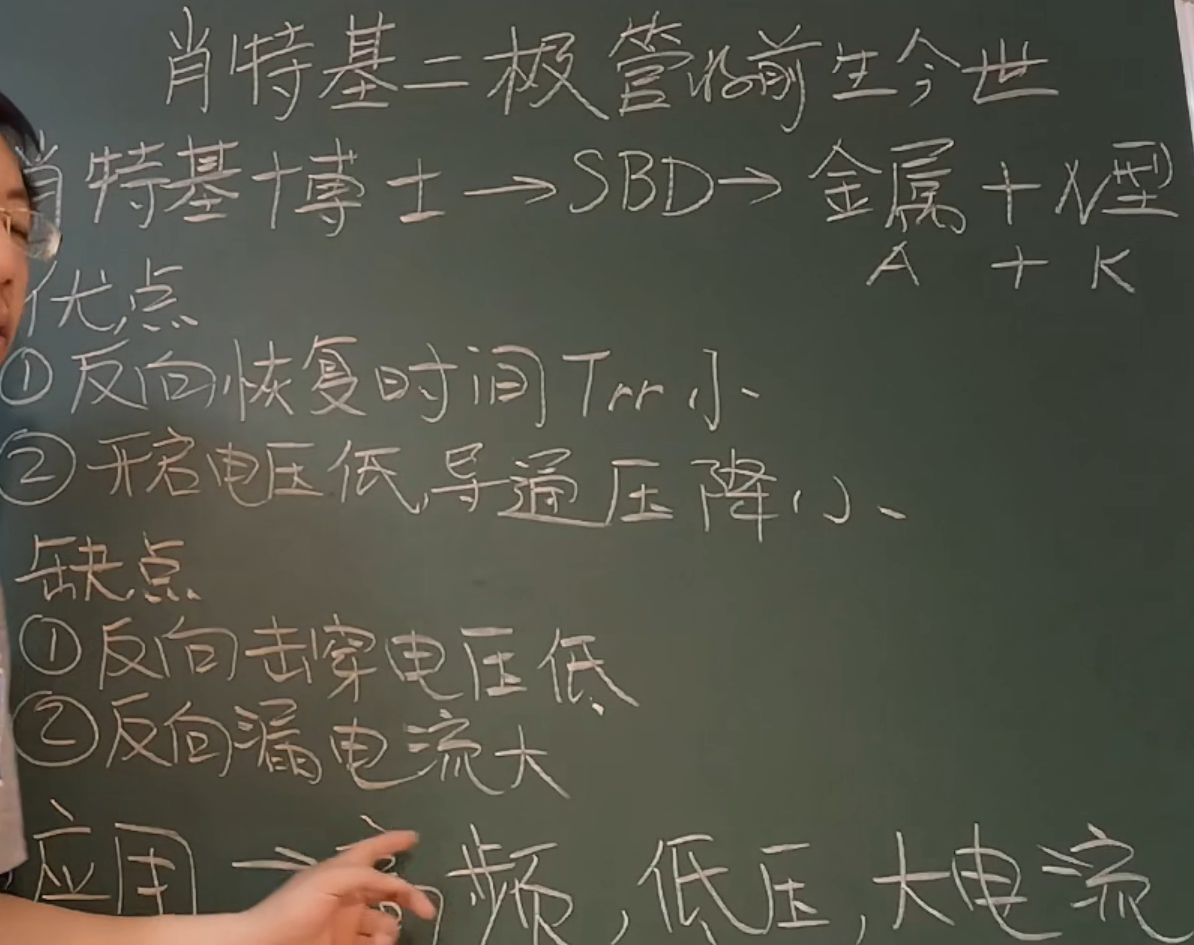 肖特基二极管的前生今世
肖特基博士→SBD→金属+N型
A + K
优点
①反向恢复时间Trr小、
②开启电压低,导通压降小、
缺点
①反向击穿电压低、
②反向漏电流大
应用→高频,低压,大电流